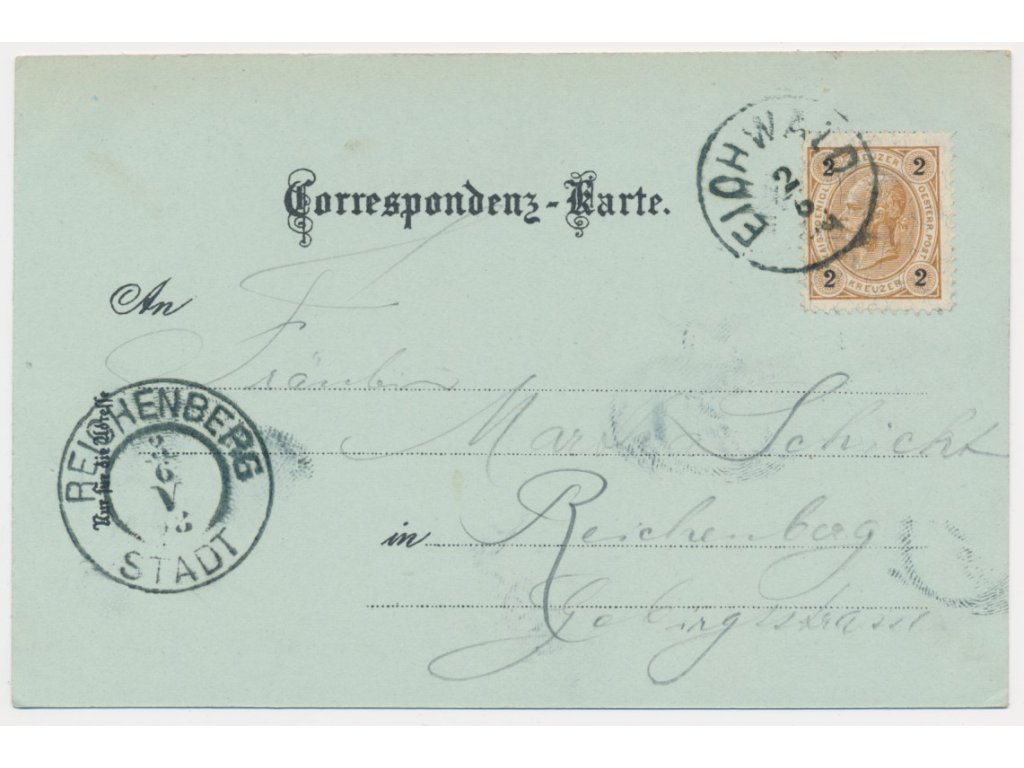 EICHWALD
2 KREUZER 2
KAIS. KÖNIGL. OESTERR. POST.
2 KREUZER 2
Correspondenz-Karte.
An
Fräulein
Marie Schicht
in Reichenberg
Gebirgsstrasse
Nur für die Adresse
REICHENBERG
STADT